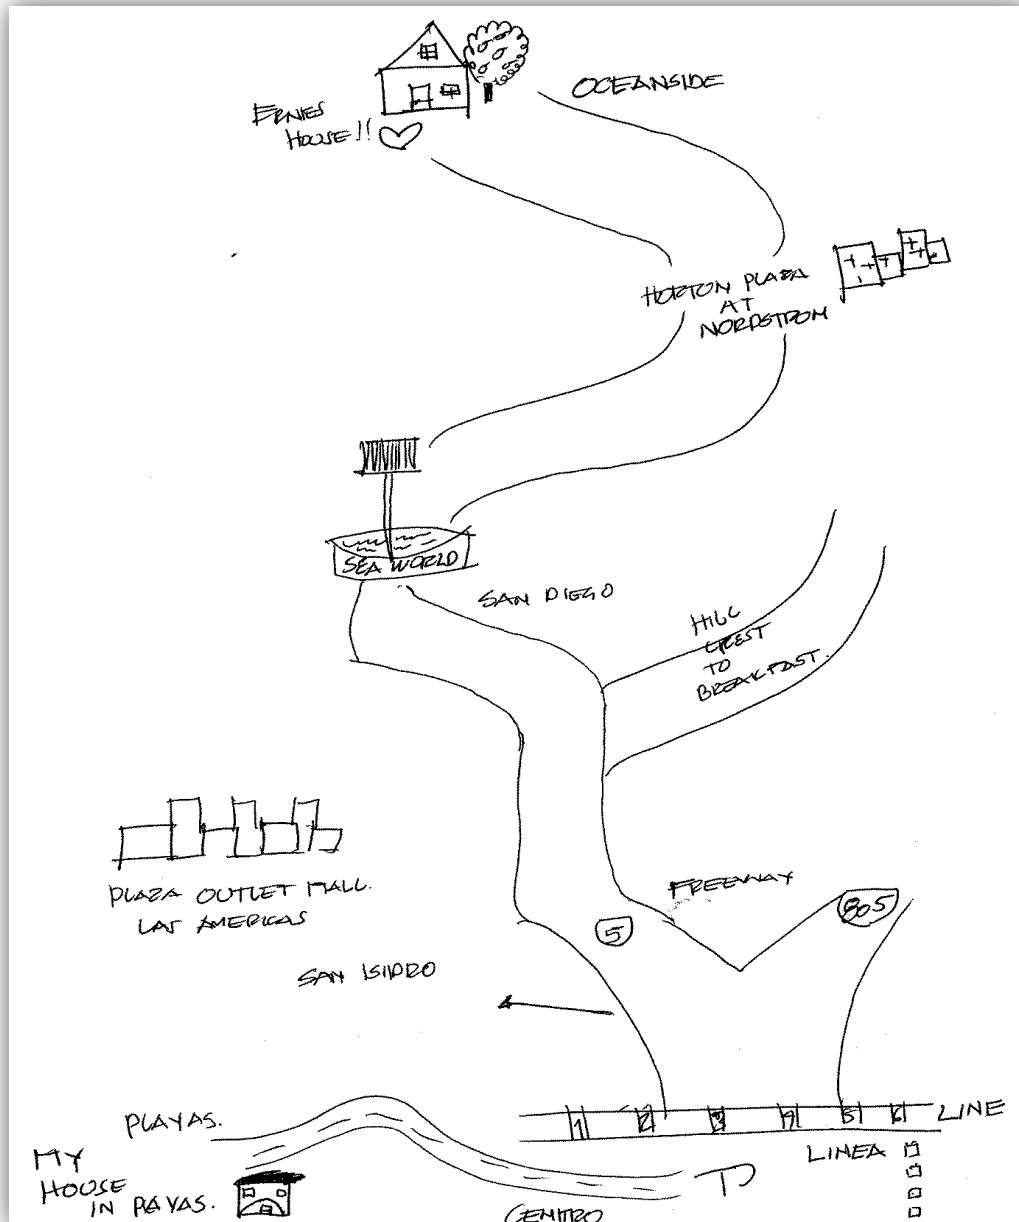 OCEANSIDE
ERNIES
HOUSE!!
HORTON PLAZA
AT
NORDSTROM
SEA WORLD
SAN DIEGO
HILL
CREST
TO
BREAKFAST.
PLAZA OUTLET MALL.
LAS AMERICAS
FREEWAY
5
805
SAN ISIDRO
1 2 3 4 5 6 LINE
PLAYAS.
LINEA
MY
HOUSE
IN PAYAS.
TJ
CENTRO